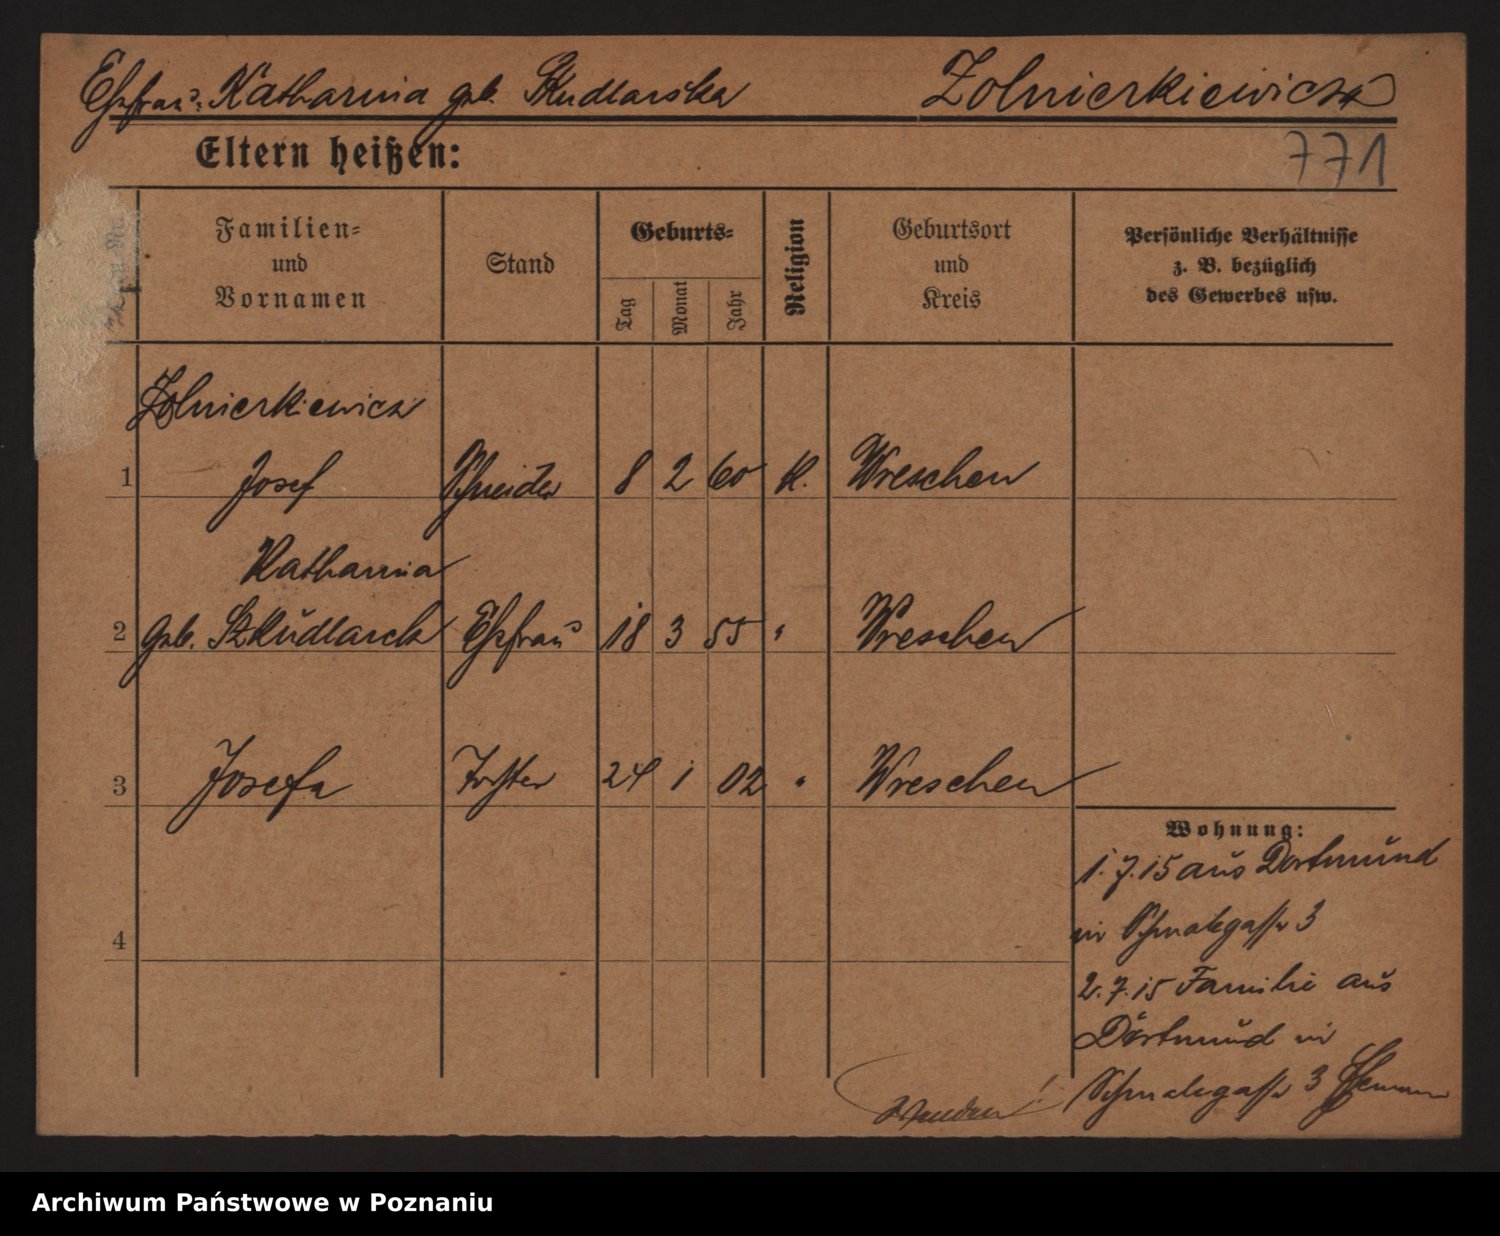 Ehefrau Katharina geb. Skudlarska Zolnierkiewicz
Eltern heißen:
771
Familien=
und
Vornamen
Stand
Geburts=
Tag
Monat
Jahr
Religion
Geburtsort
und
Kreis
Persönliche Verhältnisse
z. B. bezüglich
des Gewerbes usw.
Zolnierkiewicz
1 Josef Schneider 8 2 60 k. Wreschen
Katharina
2 geb. Szkudlarek Ehefrau 18 3 55 " Wreschen
3 Josefa Tochter 24 1 02 " Wreschen
4
Wohnung:
1.7.15 aus Dortmund
in Schmalegasse 3
2.7.15 Familie aus
Dortmund in
Schmalegasse 3
Wenden!
Archiwum Państwowe w Poznaniu